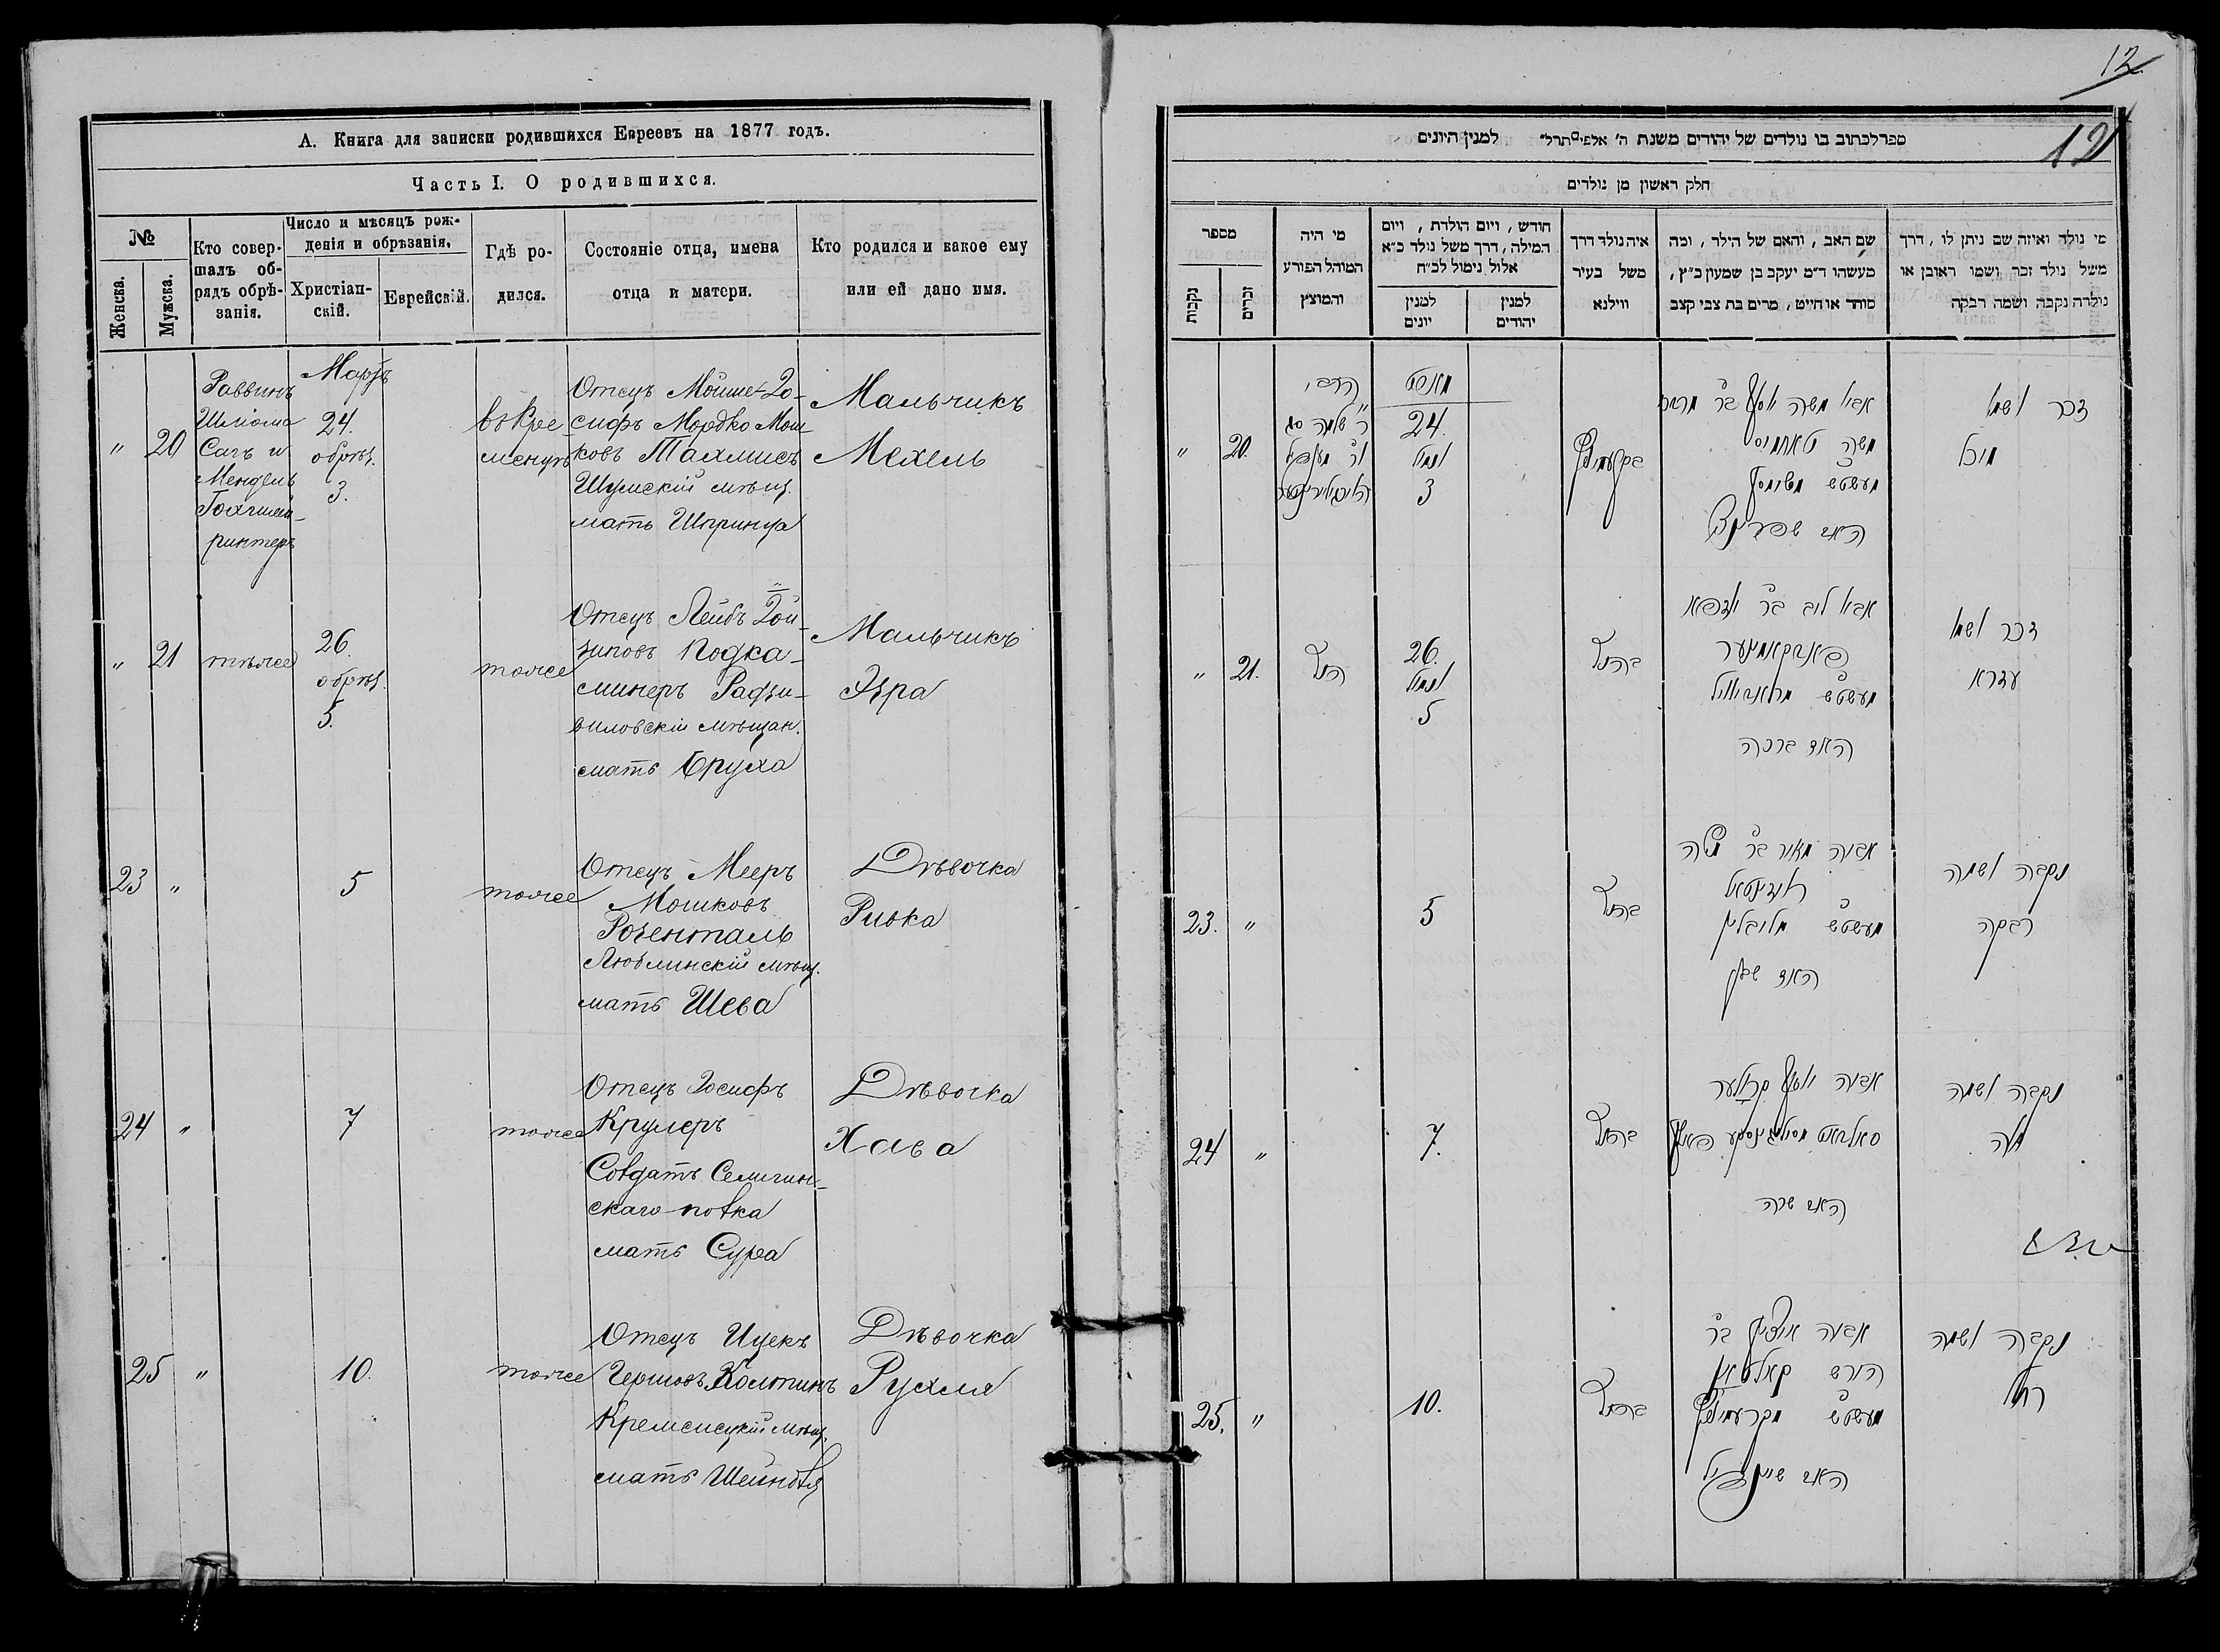 А. Книга для записки родившихся Евреевъ на 1877 годъ.
Часть I. О родившихся.
№
Женска.
Мужска.
Кто совер-
шалъ об-
рядъ обрѣ-
занія.
Число и мѣсяцъ рож-
денія и обрѣзанія.
Христіан-
скій.
Еврейскій.
Гдѣ ро-
дился.
Состояніе отца, имена
отца и матери.
Кто родился и какое ему
или ей дано имя.
" 20
Раввинъ
Шліома
Сагъ и
Мендель
Мартъ
24.
обрѣз.
3.
въ Кре
менцѣ
Отецъ Мойше-Іо-
сифъ Мордко Мош-
ковъ Тахлисъ
Шумскій мѣщ.
мать Шпринца
Мальчикъ
Мехель
" 21
тѣже
26.
обрѣз.
5.
тоже
Отецъ Лейбъ Іой-
зиповъ Подка-
минеръ Радзи-
виловскій мѣщан.
мать Бруха
Мальчикъ
Эзра
23 "
5
тоже
Отецъ Мееръ
Мошковъ
Розенталь
Люблинскій мѣщ.
мать Шева
Дѣвочка
Ривка
24 "
7
тоже
Отецъ Іосифъ
Крулеръ
Солдатъ Селигин-
скаго полка
мать Сура
Дѣвочка
Хава
25 "
10.
тоже
Отецъ Ицекъ
Гершовъ Колтинъ
Кременецкій мѣщ.
мать Шейндля
Дѣвочка
Рухля
12.
12
ספר לכתוב בו נולדים של יהודים משנת ה' אלפים תרל" למנין היונים
חלק ראשון מן נולדים
מספר
נקבות
זכרים
מי היה
המוהל הפורע
והמוצץ
חודש, ויום הולדת, ויום
המילה, דרך משל נולד כ"א
אלול נימול לכ"ח
למנין
יונים
למנין
יהודים
איה נולד דרך
משל בעיר
ווילנא
שם האב, והאם של הילד, ומה
מעשהו ד"מ יעקב בן שמעון כ"ץ,
סוחר או חייט, מרים בת צבי קצב
מי נולד ואיזה שם ניתן לו, דרך
משל נולד זכר ושמו ראובן או
נולדה נקבה ושמה רבקה
" 20.
הרבי
ר' שלמה סג
מארט
24.
ונמול
3
בקרעמיניץ
אביו משה יוסף בר מרדכי
משה טאחליס
האם שפרינצא
זכר ושמו
מיכל
" 21.
הנ"ל
26.
ונמול
5
כהנ"ל
אביו ליב בר
פאדקאמינער
האם ברכה
זכר ושמו
עזרא
23. "
5
כהנ"ל
אביה מאיר בר משה
ראזינטאל
מלובלין
האם שבע
נקבה ושמה
רבקה
24 "
7.
כהנ"ל
אביה יוסף קרולער
האם שרה
נקבה ושמה
חוה
25. "
10.
כהנ"ל
אביה איציק בר
הירש קאלטין
מקרעמיניץ
האם שיינדיל
נקבה ושמה
רחל